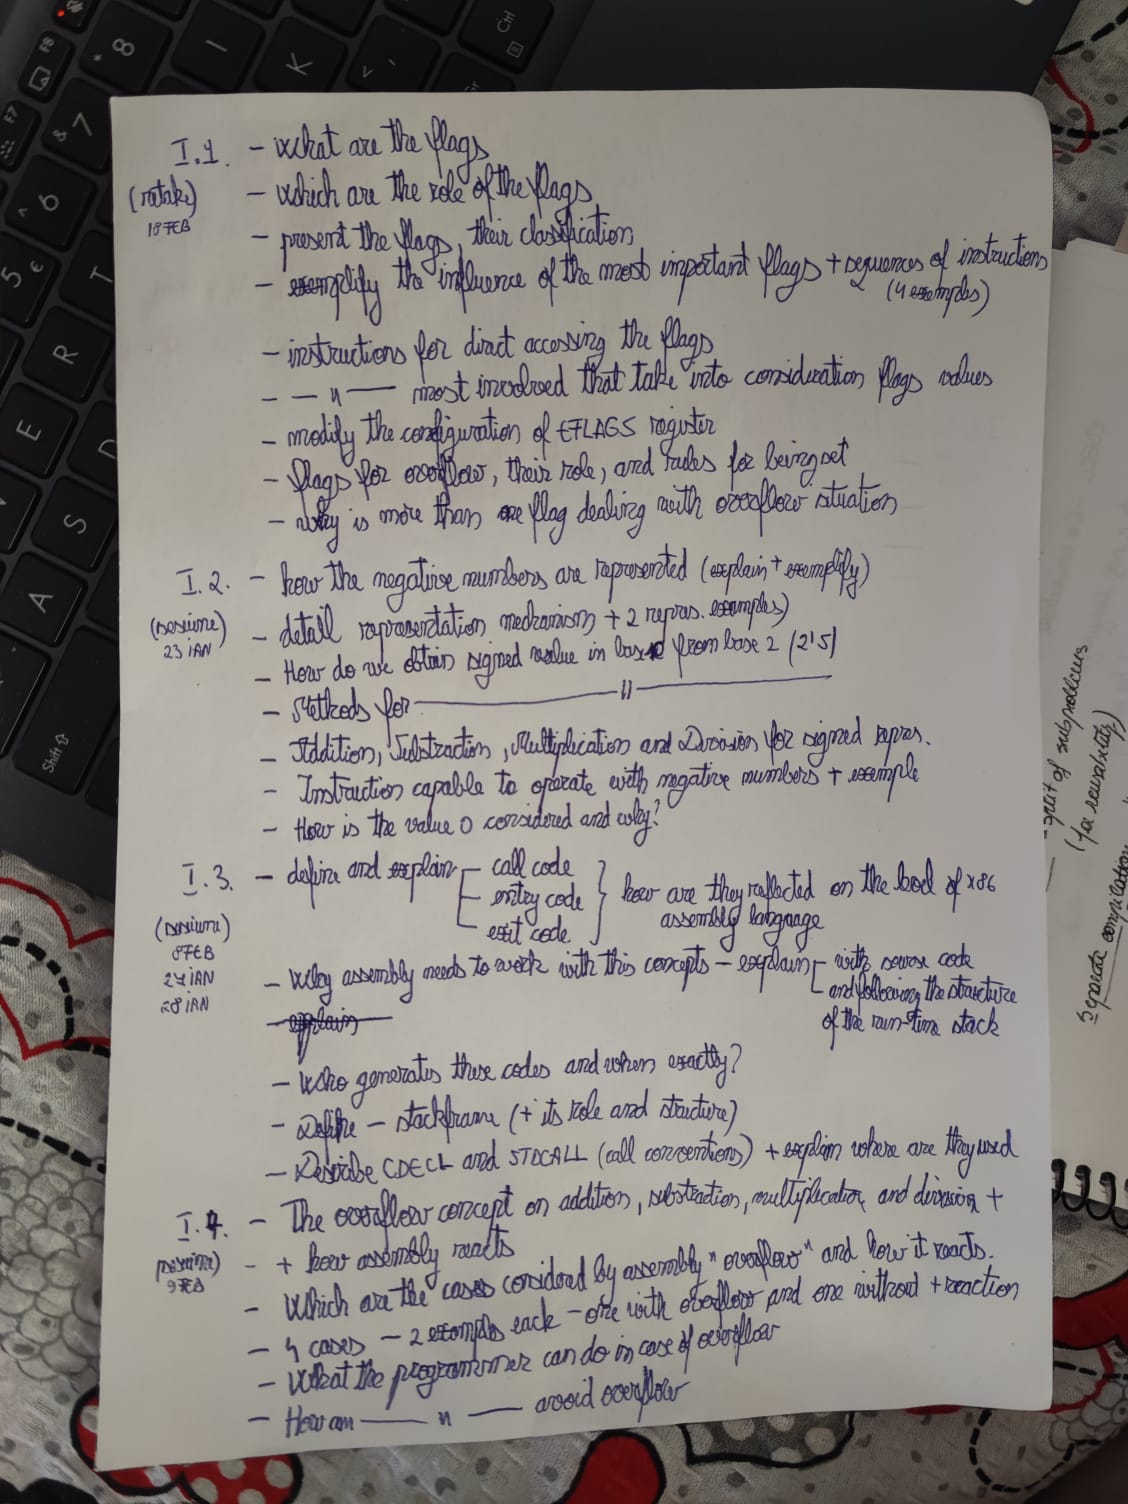 I.1. - what are the flags
(retake) - which are the role of the flags
18 FEB
- present the flags, their classification
- exemplify the influence of the most important flags + sequences of instructions
(4 examples)
- instructions for direct accessing the flags
- — " — most involved that take into consideration flags values
- modify the configuration of EFLAGS register
- flags for overflow, their role, and rules for being set
- why is more than one flag dealing with overflow situation
I.2. - how the negative numbers are represented (explain + exemplify)
(sesiune) - detail representation mechanism + 2 repres. examples)
23 IAN
- How do we obtain signed value in base 10 from base 2 (2's)
- Methods for — " —
- Addition, Substraction, Multiplication and Division for signed repres.
- Instruction capable to operate with negative numbers + example
- How is the value 0 considered and why?
I.3. - define and explain call code
entry code how are they reflected on the level of x86
exit code assembly language
(sesiune)
8 FEB
27 IAN
28 IAN
- Why assembly needs to work with this concepts - explain with source code
and following the structure
explain
of the run-time stack
- Who generates these codes and when exactly?
- Define - stackframe (+ its role and structure)
- Describe CDECL and STDCALL (call conventions) + explain where are they used
I.4. - The overflow concept on addition, substraction, multiplication and division +
(sesiune) - + how assembly reacts
9 FEB
- Which are the cases considered by assembly "overflow" and how it reacts.
- 4 cases - 2 examples each - one with overflow and one without + reaction
- What the programmer can do in case of overflow
- How can — " — avoid overflow
split of subproblems
(for reusability)
Separate compilation
* 8
I
K
Ctrl
F8
F7
& 7
^ 6
5 €
T
R
E
D
S
A
Shift